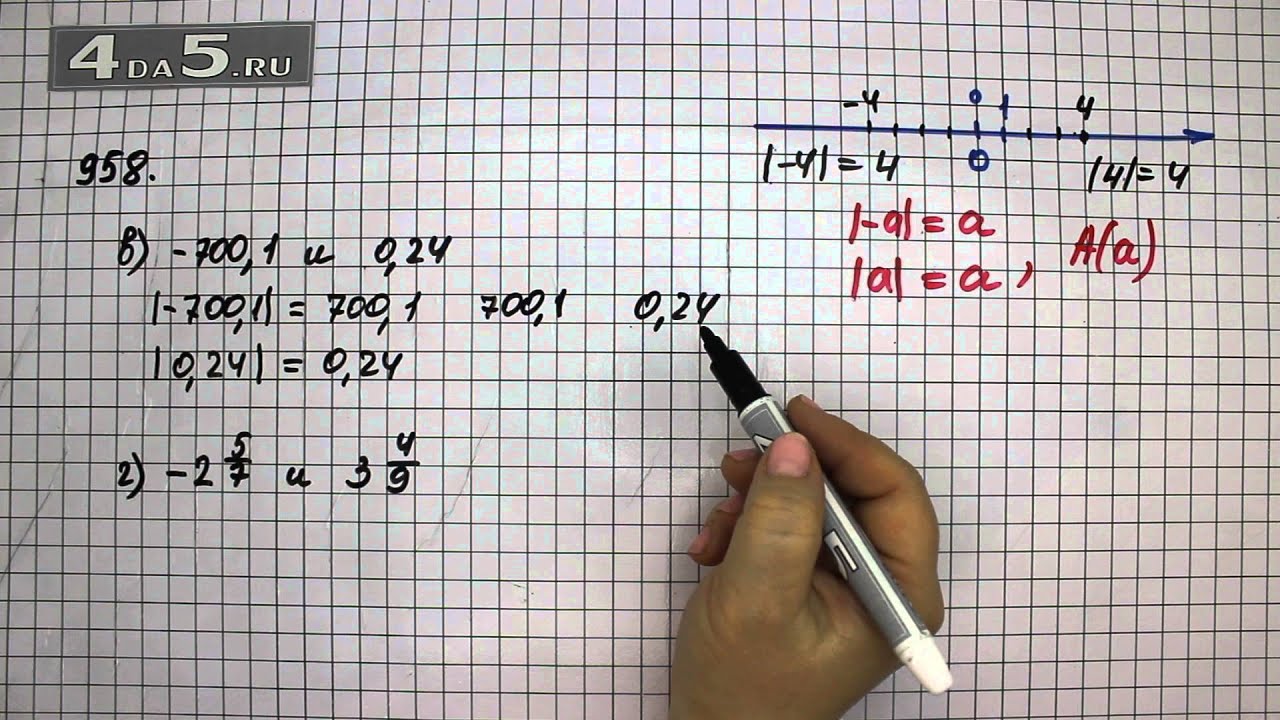 4DA5.RU
-4 0 1 4
|-4| = 4 0 |4| = 4
|-a| = a
|a| = a, A(a)
958.
в) -700,1 и 0,24
|-700,1| = 700,1 700,1 0,24
|0,24| = 0,24
г) -2 5/7 и 3 4/9